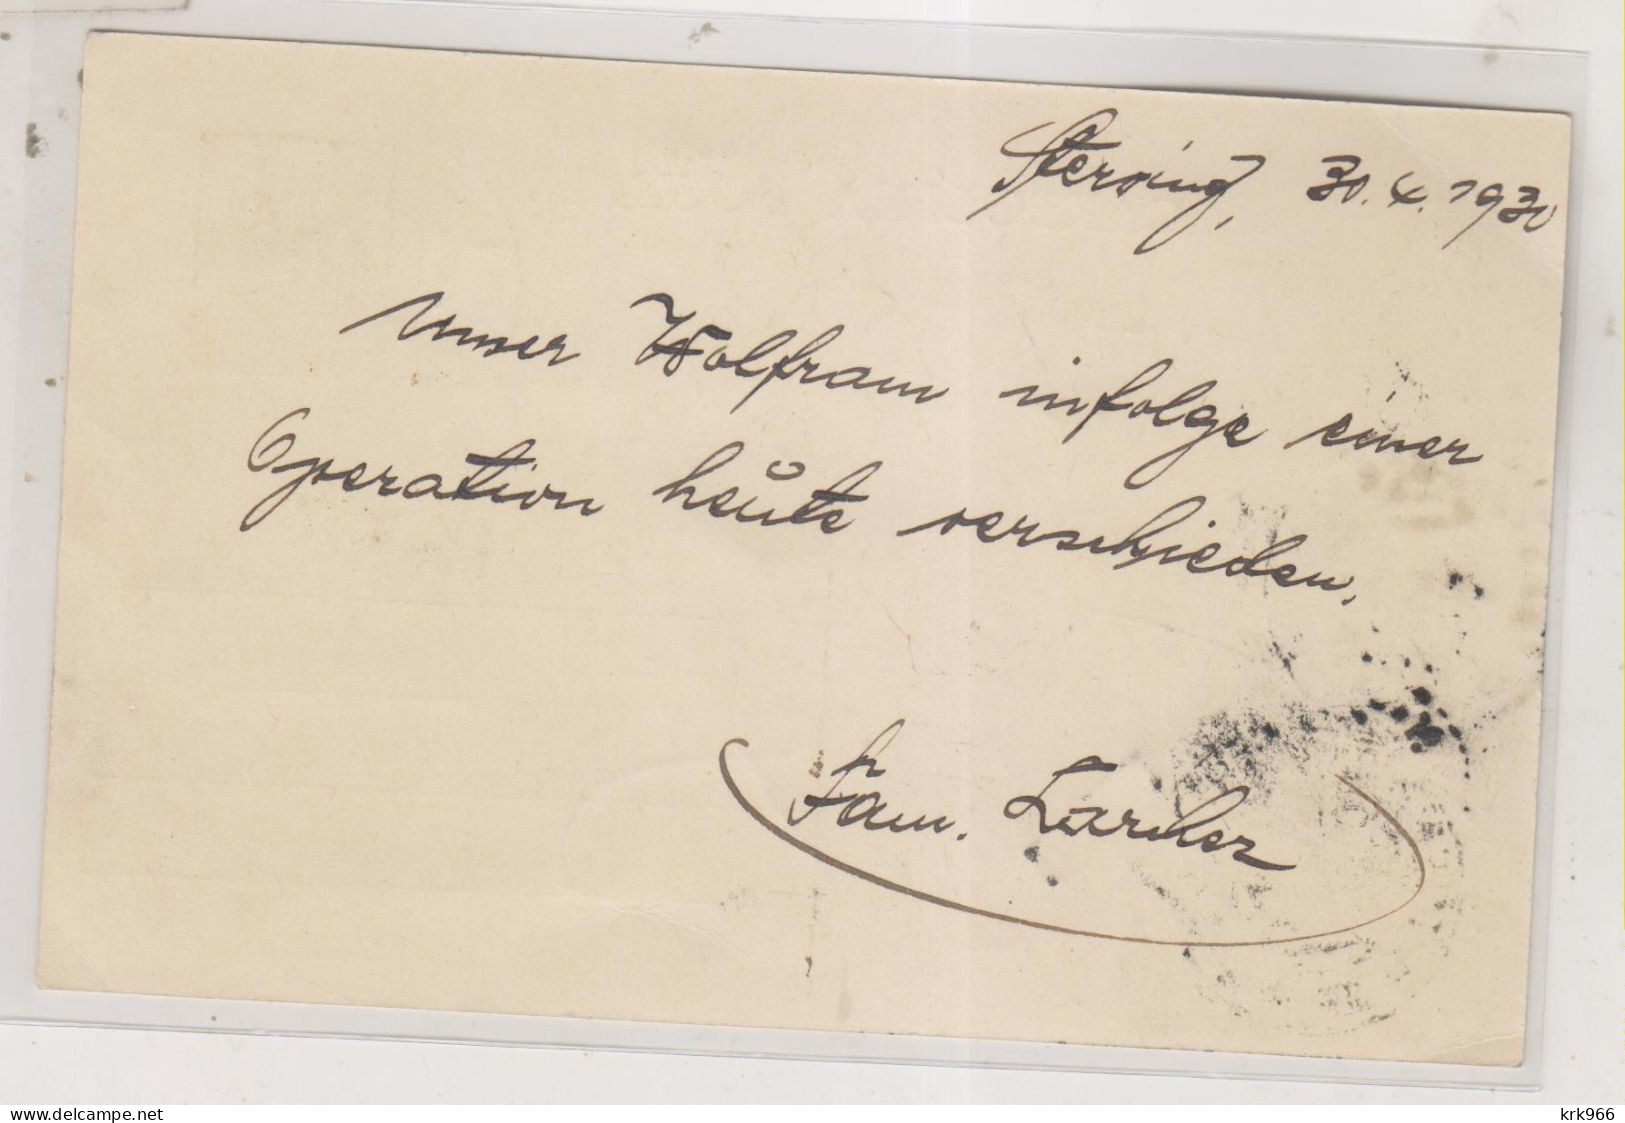 Sterzing, 30.4.1930
Unser Wolfram infolge einer
Operation heute verschieden.
Fam. Larcher
krk966